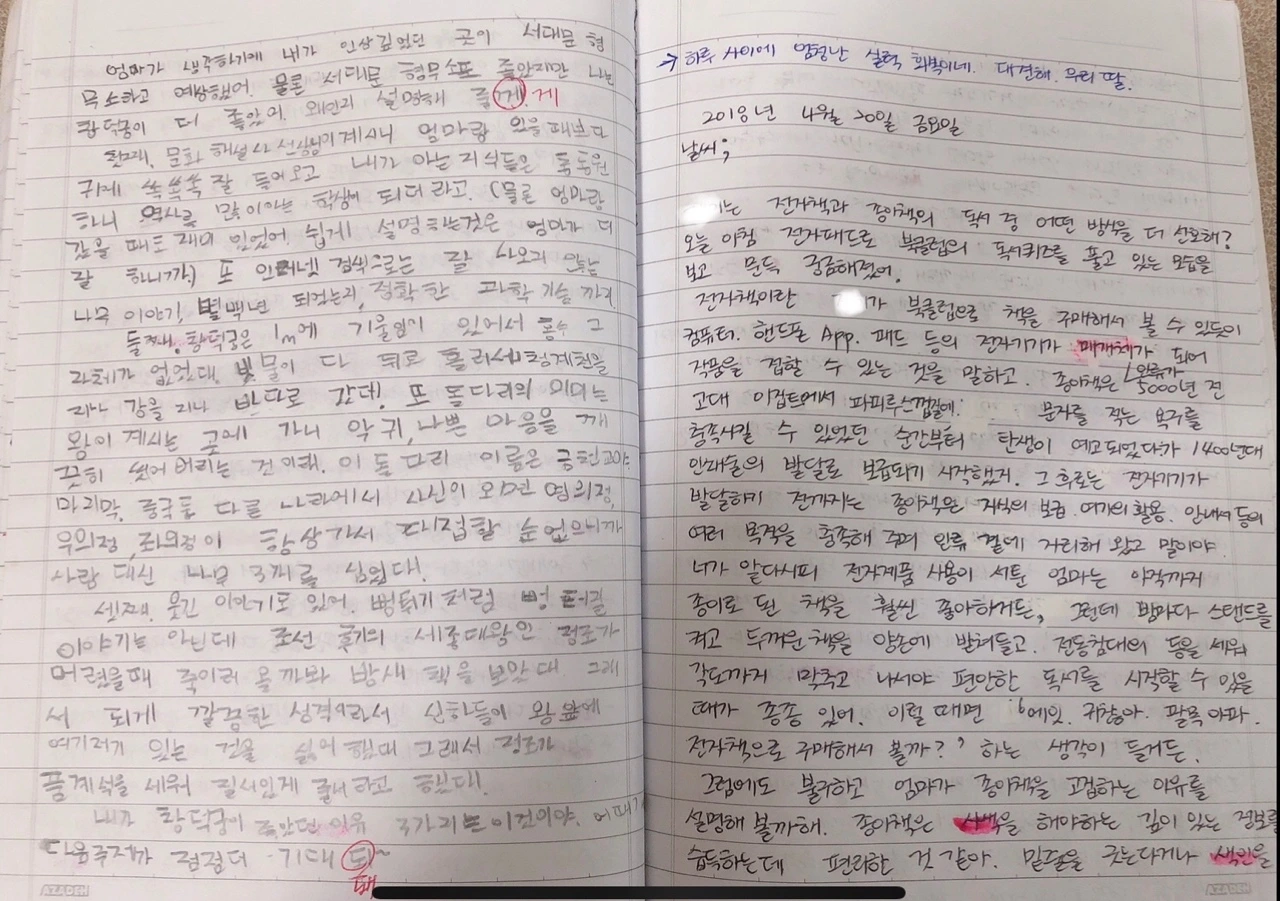 엄마가 생각하기에 내가 인상깊었던 곳이 서대문 형
무소라고 예상했어. 물론 서대문 형무소도 좋았지만 나는
창덕궁이 더 좋았어. 왜인지 설명해 줄게. 게
첫째, 문화 해설사 선생님이 계시니 엄마랑 있을때보다
귀에 쏙쏙쏙 잘 들어오고 내가 아는 지식들은 총동원
하니 역사를 많이 아는 학생이 되더라고. (물론 엄마랑
갔을 때도 재미 있었어. 쉽게 설명하는것은 엄마가 더
잘 하니까) 또 인터넷 검색으로는 잘 나오지 않는
나무 이야기, 몇백년 되었는지, 정확한 과학 기술 까지
둘째, 창덕궁은 1m에 기울임이 있어서 홍수 그
자체가 없었대. 빗물이 다 뒤로 흘러서 청계천을
지나 강을 지나 바다로 간대! 또 돌다리의 의미는
왕이 계시는 곳에 가니 악귀, 나쁜 마음을 깨
끗히 씻어버리는 건 이래. 이 돌 다리 이름은 금천교야.
마지막, 중국등 다른 나라에서 사신이 오면 영의정,
우의정, 좌의정이 항상가서 대접할 순 없으니까
사람 대신 나무 3그루를 심었대!
세째, 웃긴 이야기도 있어. 뻥튀기처럼 뻥 터질
이야기는 아닌데 조선 후기의 세종대왕인 정조가
어렸을때 죽이러 올까봐 밤새 책을 보았대. 그래
서 되게 깔끔한 성격이라서 신하들이 왕 앞에
여기저기 있는 것을 싫어 했대 그래서 정조가
품계석을 세워 질서있게 줄서라고 했대!
내가 창덕궁이 좋았던 이유 3가지는 이것이야. 어때?
다음주제가 점점더 기대 돼~
돼
→ 하루 사이에 엄청난 실력 회복이네. 대견해. 우리 딸.
2018년 4월 20일 금요일
날씨;
는 전자책과 종이책의 독서 중 어떤 방식을 더 선호해?
오늘 아침 전자패드로 북클럽의 독서퀴즈를 풀고 있는 모습을
보고 문득 궁금해졌어.
전자책이란 가 북클럽으로 책을 구매해서 볼 수 있듯이
컴퓨터. 핸드폰 App. 패드 등의 전자기기가 매개체가 되어
작품을 접할 수 있는 것을 말하고. 종이책은 인류가 5000년 전
고대 이집트에서 파피루스껍질에 문자를 적는 욕구를
충족시킬 수 있었던 순간부터 탄생이 예고되었다가 1400년대
인쇄술의 발달로 보급되기 시작했지. 그 후로는 전자기기가
발달하기 전까지는 종이책은 지식의 보급. 여가의 활용. 안내서 등의
여러 목적을 충족해 주며 인류 곁에 자리해 왔고 말이야.
너가 알다시피 전자제품 사용이 서툰 엄마는 아직까지
종이로 된 책을 훨씬 좋아하거든, 그런데 밤마다 스탠드를
켜고 두꺼운 책을 양손에 받쳐들고. 전동침대의 등을 세워
각도까지 맞추고 나서야 편안한 독서를 시작할 수 있을
때가 종종 있어. 이럴 때면 '에잇. 귀찮아. 팔목 아파.
전자책으로 구매해서 볼까?' 하는 생각이 들거든.
그럼에도 불구하고 엄마가 종이책을 고집하는 이유를
설명해 볼까해. 종이책은 사색을 해야하는 깊이 있는 정보를
습득하는데 편리한 것 같아. 밑줄을 긋는다거나 색인을
AZADEH
AZADEH